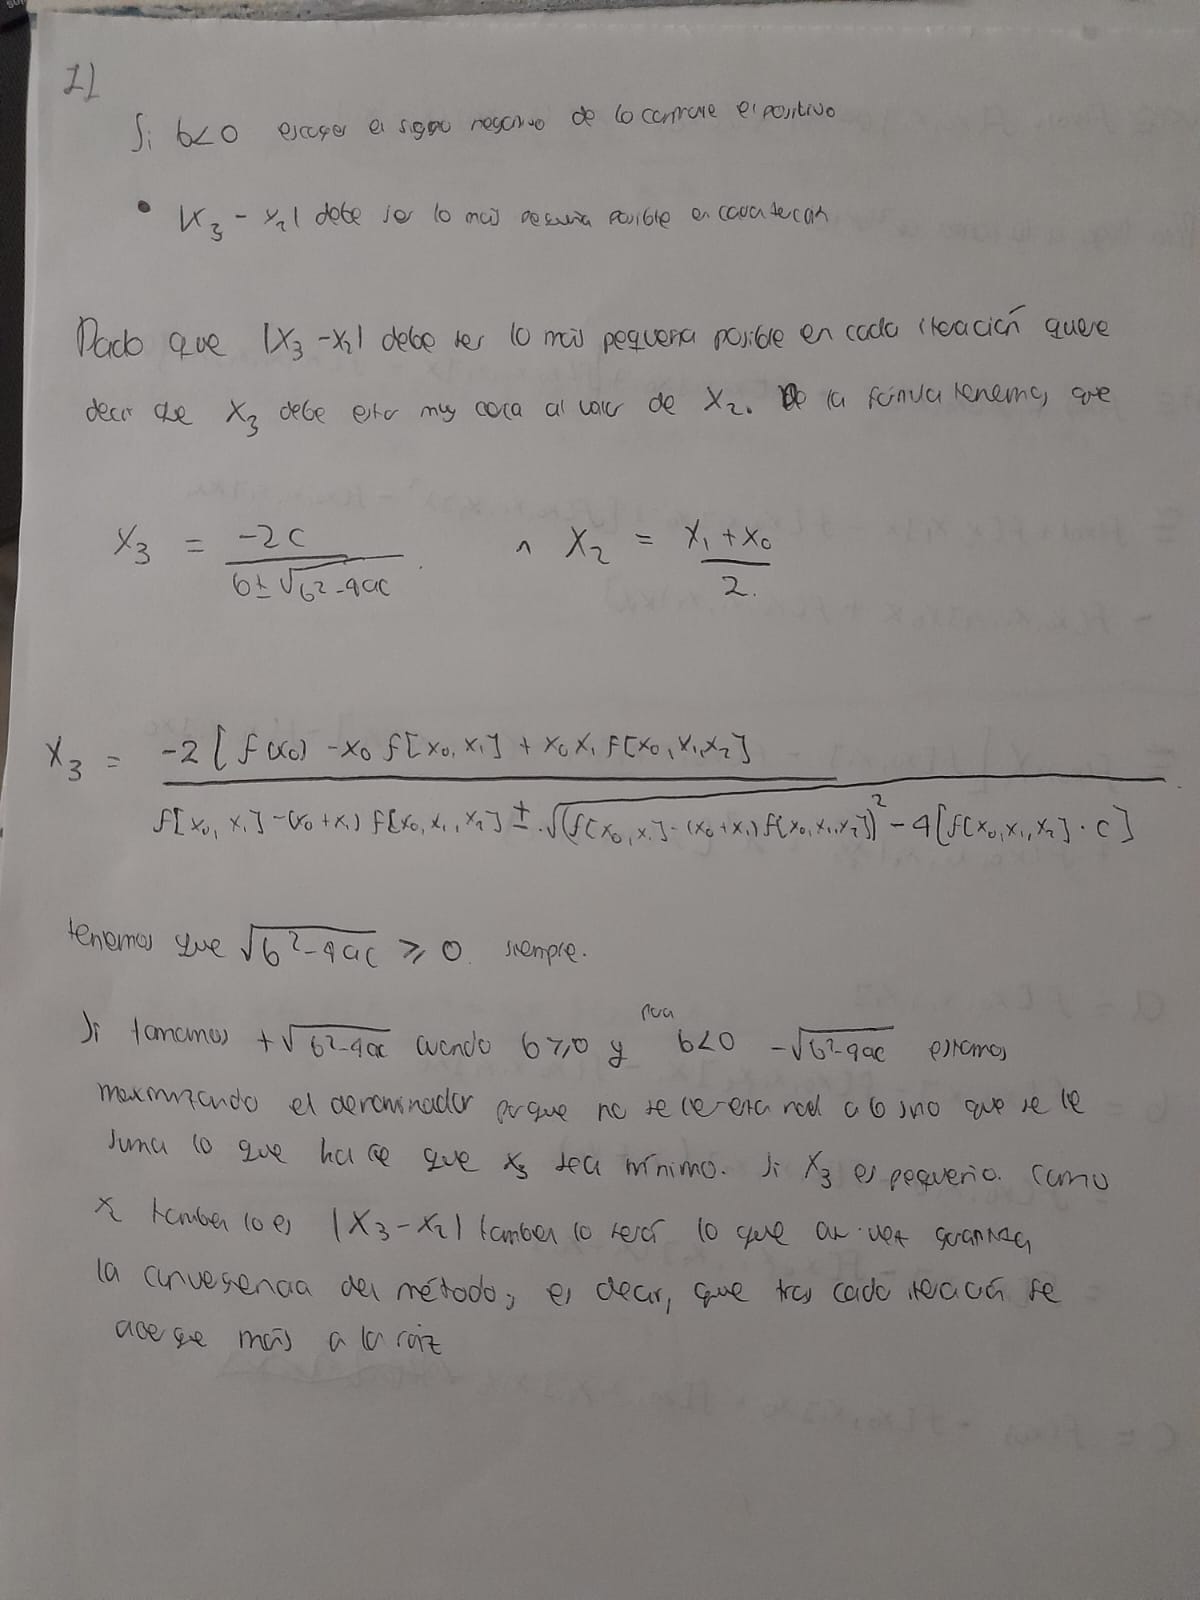 1)
Si b<0 escoger el signo negativo de lo contrario el positivo
• |x₃ - x₂| debe ser lo más pequeña posible en cada iteración
Dado que |x₃ - x₂| debe ser lo más pequeña posible en cada iteración quiere
decir que x₃ debe estar muy cerca al valor de x₂. De la fórmula tenemos que
x₃ = -2c / (b ± √(b² - 4ac)) ∧ x₂ = (x₁ + x₀) / 2.
x₃ = -2 [ f(x₀) - x₀ f[x₀, x₁] + x₀ x₁ f[x₀, x₁, x₂] ] / f[x₀, x₁] - (x₀ + x₁) f[x₀, x₁, x₂] ± √((f[x₀, x₁] - (x₀ + x₁) f[x₀, x₁, x₂])² - 4[f[x₀, x₁, x₂] · c]
tenemos que √(b² - 4ac) ≥ 0 siempre.
Si tomamos +√(b² - 4ac) cuando b ≥ 0 y para b<0 -√(b² - 4ac) estamos
maximizando el denominador porque no se le resta a b sino que se le
suma lo que hace que x₃ sea mínimo. Si x₃ es pequeño. Como
x₂ también lo es |x₃ - x₂| también lo será lo que a su vez garantiza
la convergencia del método, es decir, que tras cada iteración se
acerque más a la raíz